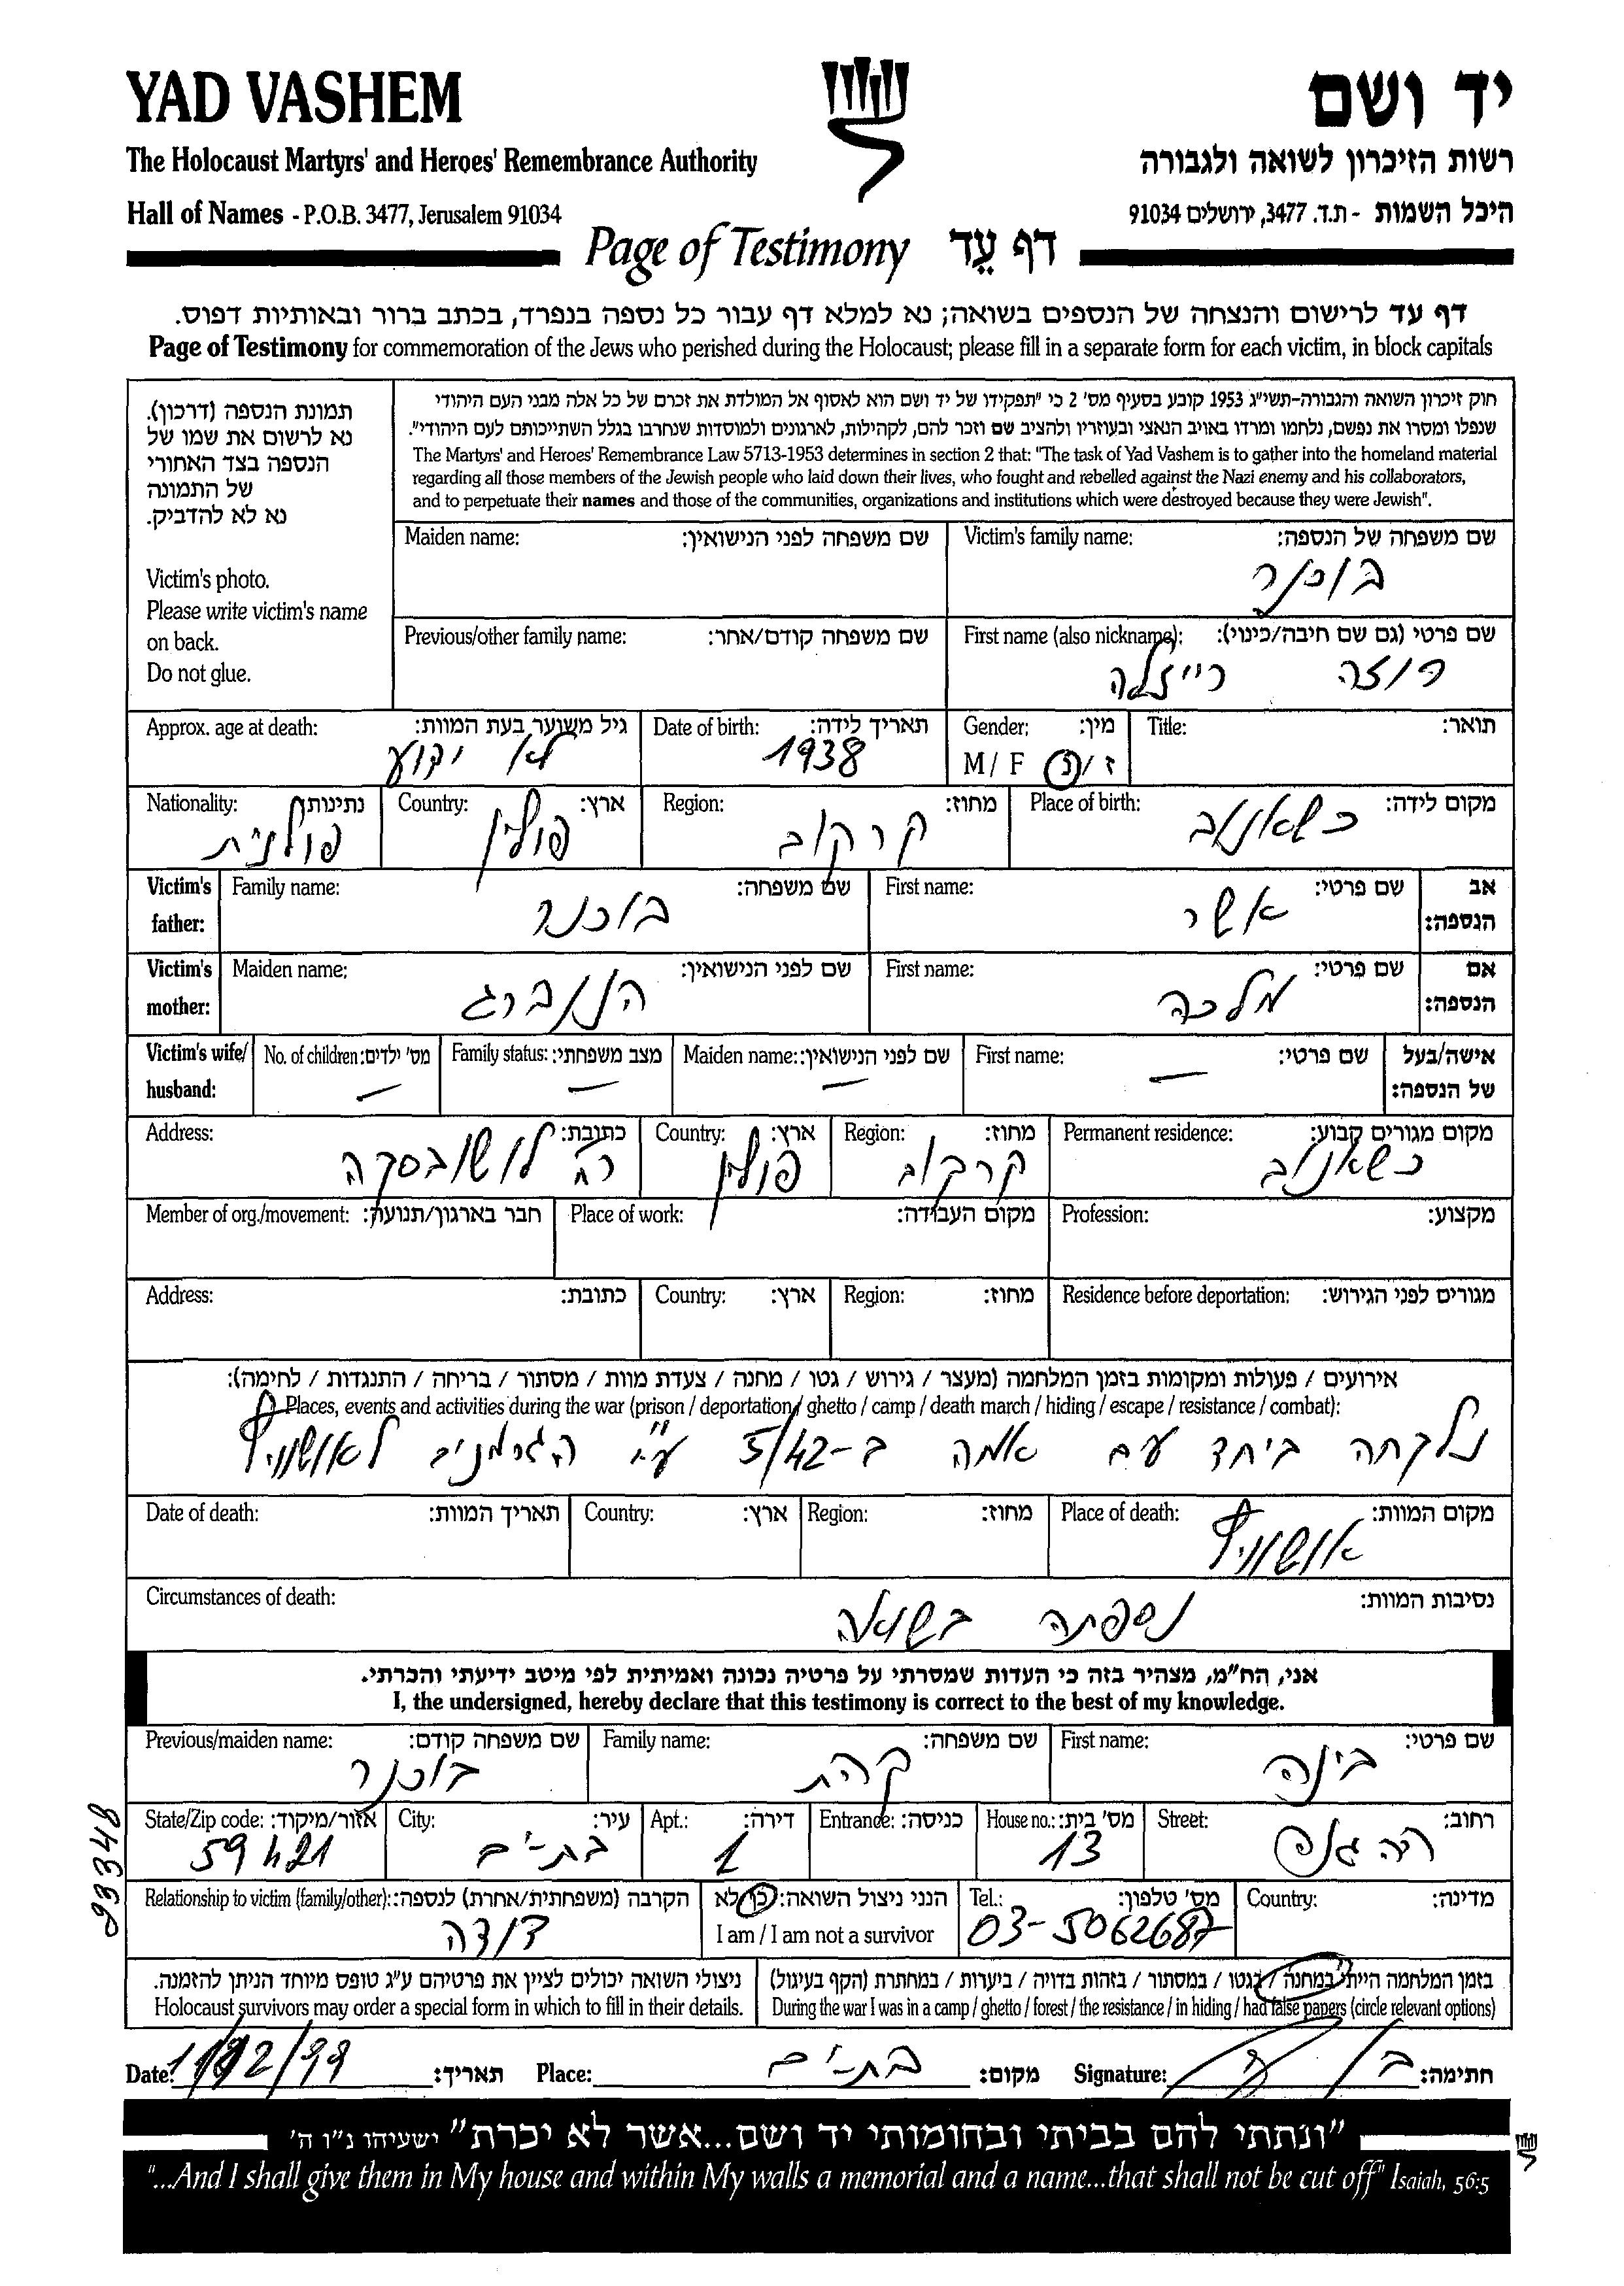 YAD VASHEM
יד ושם
The Holocaust Martyrs' and Heroes' Remembrance Authority
רשות הזיכרון לשואה ולגבורה
Hall of Names - P.O.B. 3477, Jerusalem 91034
היכל השמות - ת.ד. 3477, ירושלים 91034
Page of Testimony דף עֵד
דף עד לרישום והנצחה של הנספים בשואה; נא למלא דף עבור כל נספה בנפרד, בכתב ברור ובאותיות דפוס.
Page of Testimony for commemoration of the Jews who perished during the Holocaust; please fill in a separate form for each victim, in block capitals
תמונת הנספה (דרכון).
נא לרשום את שמו של
הנספה בצד האחורי
של התמונה
נא לא להדביק.
Victim's photo.
Please write victim's name
on back.
Do not glue.
חוק זיכרון השואה והגבורה-תשי"ג 1953 קובע בסעיף מס' 2 כי "תפקידו של יד ושם הוא לאסוף אל המולדת את זכרם של כל אלה מבני העם היהודי
שנפלו ומסרו את נפשם, נלחמו ומרדו באויב הנאצי ובעוזריו ולהציב שם וזכר להם, לקהילות, לארגונים ולמוסדות שנחרבו בגלל השתייכותם לעם היהודי".
The Martyrs' and Heroes' Remembrance Law 5713-1953 determines in section 2 that: "The task of Yad Vashem is to gather into the homeland material
regarding all those members of the Jewish people who laid down their lives, who fought and rebelled against the Nazi enemy and his collaborators,
and to perpetuate their names and those of the communities, organizations and institutions which were destroyed because they were Jewish".
Maiden name: שם משפחה לפני הנישואין:
Victim's family name: שם משפחה של הנספה:
בוכנר
Previous/other family name: שם משפחה קודם/אחר:
First name (also nickname): שם פרטי (גם שם חיבה/כינוי):
רוזה רייזלה
Approx. age at death: גיל משוער בעת המוות:
לא ידוע
Date of birth: תאריך לידה:
1938
Gender: מין:
M / F ז / נ
Title: תואר:
Nationality: נתינות:
פולנית
Country: ארץ:
פולין
Region: מחוז:
קרקוב
Place of birth: מקום לידה:
כשאנוב
Victim's father: Family name: שם משפחה:
בוכנר
First name: שם פרטי: אב הנספה:
אשר
Victim's mother: Maiden name: שם לפני הנישואין:
הננברג
First name: שם פרטי: אם הנספה:
מלכה
Victim's wife/ husband: No. of children: מס' ילדים: Family status: מצב משפחתי: Maiden name: שם לפני הנישואין: First name: שם פרטי: אישה/בעל של הנספה:
— — — —
Address: כתובת:
רח
Country: ארץ:
פולין
Region: מחוז:
קרקוב
Permanent residence: מקום מגורים קבוע:
כשאנוב
Member of org./movement: חבר בארגון/תנועה: Place of work: מקום העבודה: Profession: מקצוע:
Address: כתובת: Country: ארץ: Region: מחוז: Residence before deportation: מגורים לפני הגירוש:
אירועים / פעולות ומקומות בזמן המלחמה (מעצר / גירוש / גטו / מחנה / צעדת מוות / מסתור / בריחה / התנגדות / לחימה):
Places, events and activities during the war (prison / deportation / ghetto / camp / death march / hiding / escape / resistance / combat):
נלקחה ביחד עם אמה ב-5/42 ע"י הגרמנים לאושוויץ
Date of death: תאריך המוות: Country: ארץ: Region: מחוז: Place of death: מקום המוות:
אושוויץ
Circumstances of death: נסיבות המוות:
נספתה בשואה
אני, הח"מ, מצהיר בזה כי העדות שמסרתי על פרטיה נכונה ואמיתית לפי מיטב ידיעתי והכרתי.
I, the undersigned, hereby declare that this testimony is correct to the best of my knowledge.
Previous/maiden name: שם משפחה קודם:
בוכנר
Family name: שם משפחה:
קהת
First name: שם פרטי:
בינה
State/Zip code: אזור/מיקוד:
59421
City: עיר:
בת-ים
Apt.: דירה:
1
Entrance: כניסה:
House no.: מס' בית:
13
Street: רחוב:
Relationship to victim (family/other): הקרבה (משפחתית/אחרת) לנספה:
דודה
הנני ניצול השואה: כן/לא
I am / I am not a survivor
Tel.: מס' טלפון:
03-5062687
Country: מדינה:
ניצולי השואה יכולים לציין את פרטיהם ע"ג טופס מיוחד הניתן להזמנה.
Holocaust survivors may order a special form in which to fill in their details.
בזמן המלחמה הייתי במחנה / בגטו / במסתור / בזהות בדויה / ביערות / במחתרת (הקף בעיגול)
During the war I was in a camp / ghetto / forest / the resistance / in hiding / had false papers (circle relevant options)
Date: תאריך:
Place: מקום:
בת-ים
Signature: חתימה:
93348
"ונתתי להם בביתי ובחומותי יד ושם...אשר לא יכרת" ישעיהו נ"ו ה'
"...And I shall give them in My house and within My walls a memorial and a name...that shall not be cut off" Isaiah, 56:5